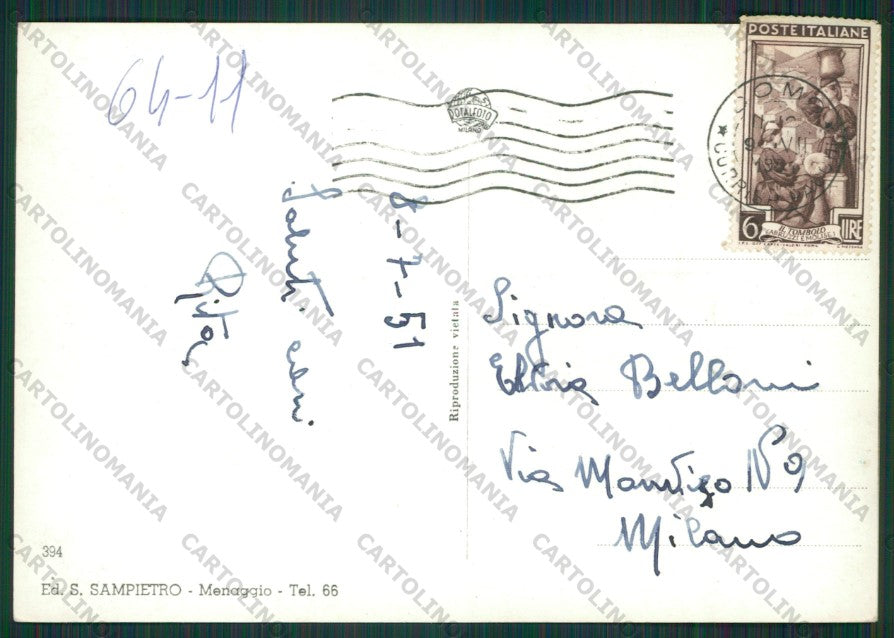 64-11
POSTE ITALIANE
TOTALFOTO
MILANO
COMO
6 LIRE
IL TOMBOLO
(ABRUZZI E MOLISE)
8-7-51
Saluti cari
Rita
Riproduzione vietata
Signora
Bellani
Via N° 9
Milano
394
Ed. S. SAMPIETRO - Menaggio - Tel. 66
CARTOLINOMANIA